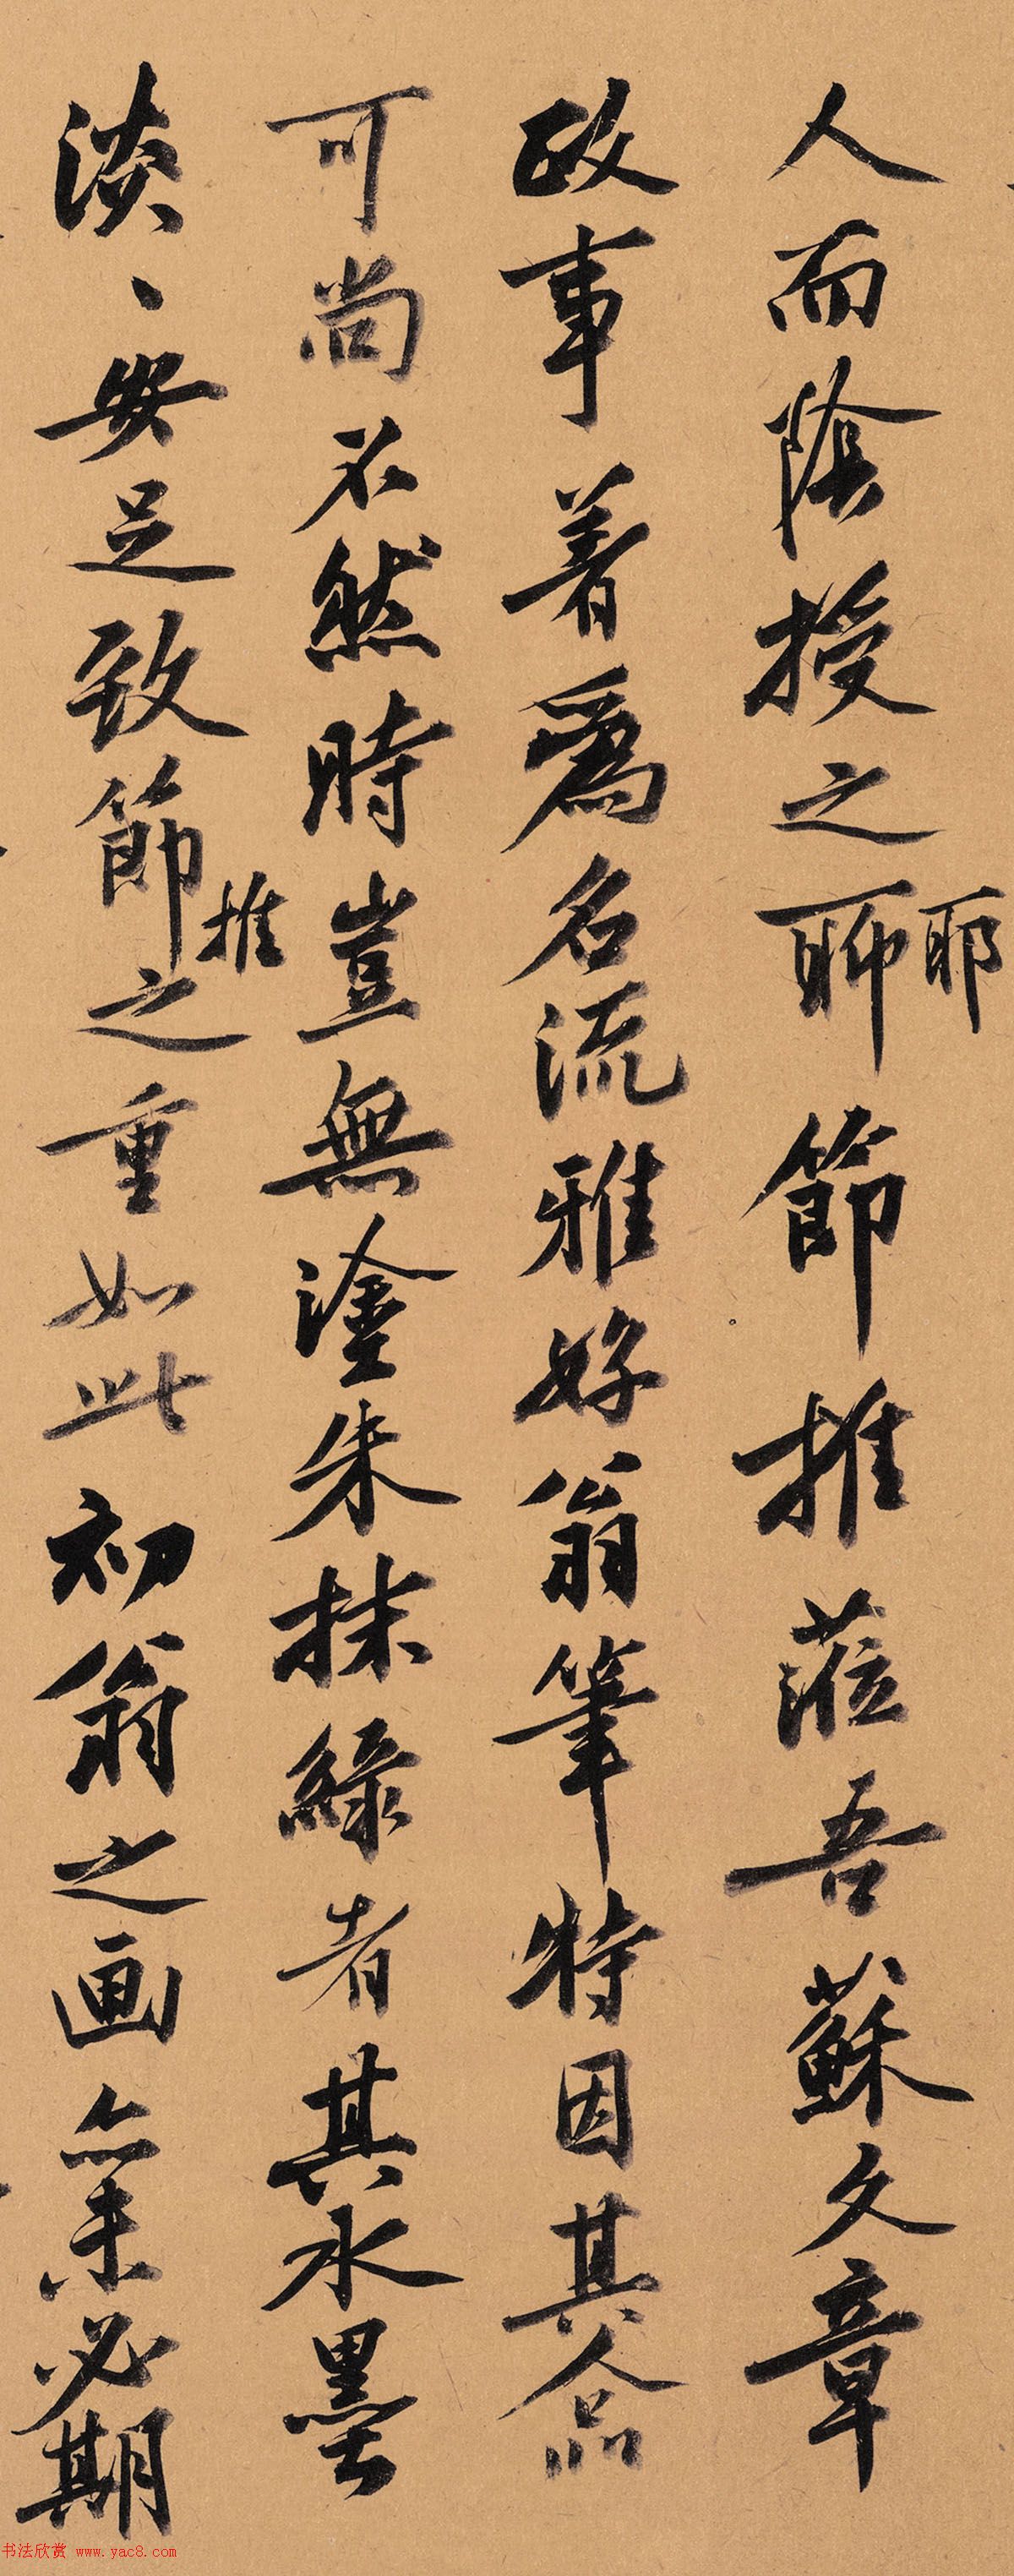 人而陰授之聊耶節推蒞吾蘇文章
政事著爲名流雅好翁筆特因其人品
可尚不然時豈無塗朱抹綠者其水墨
淡、安足致節推之重如此初翁之画亦未必期
书法欣赏 www.yac8.com